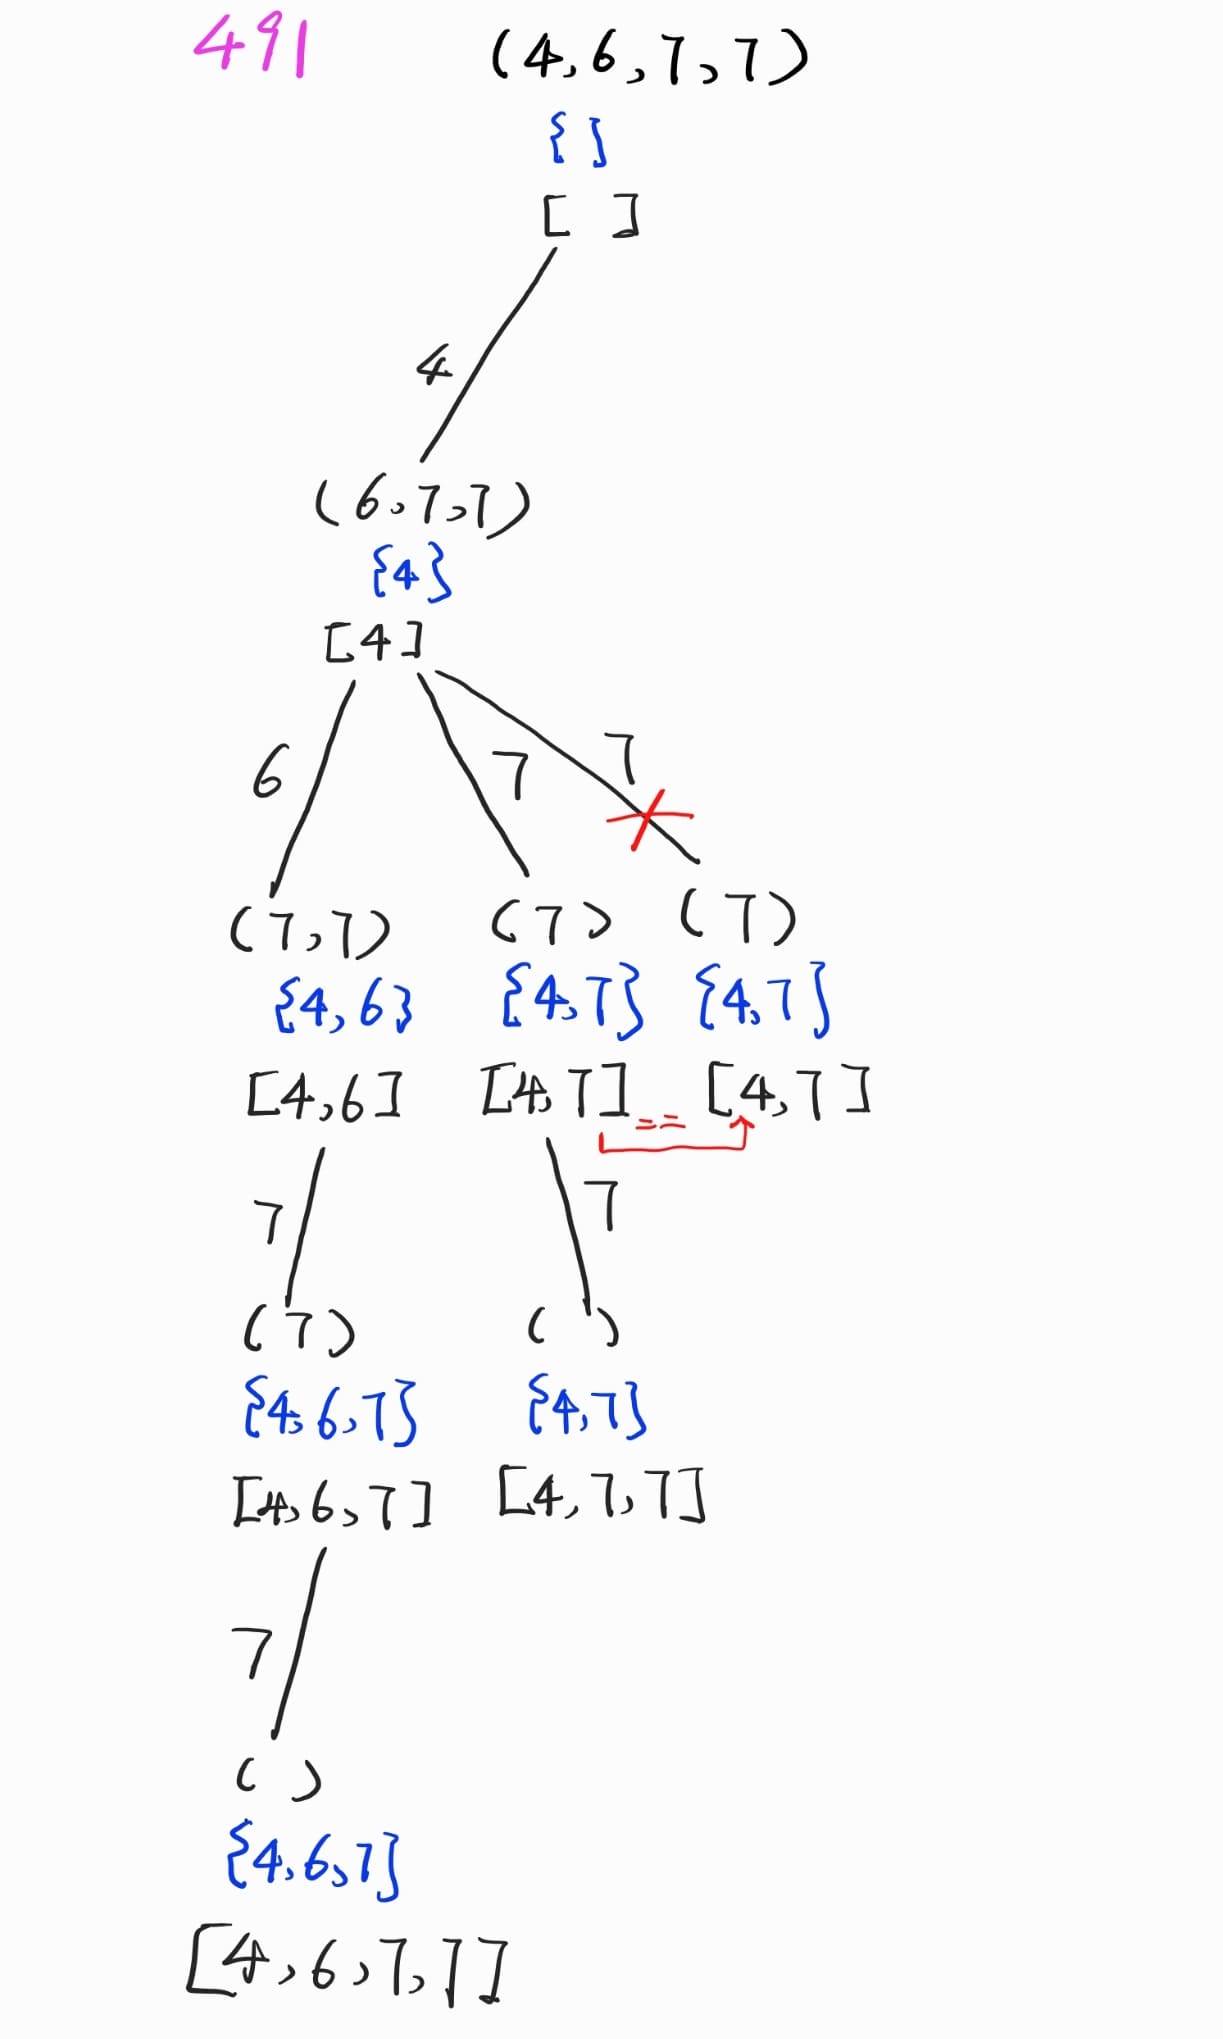 491 (4,6,7,7)
{ }
[ ]
4
(6,7,7)
{4}
[4]
6 7 7
(7,7) (7) (7)
{4,6} {4,7} {4,7}
[4,6] [4,7] == [4,7]
7 7
(7) ( )
{4,6,7} {4,7}
[4,6,7] [4,7,7]
7
( )
{4,6,7}
[4,6,7,7]